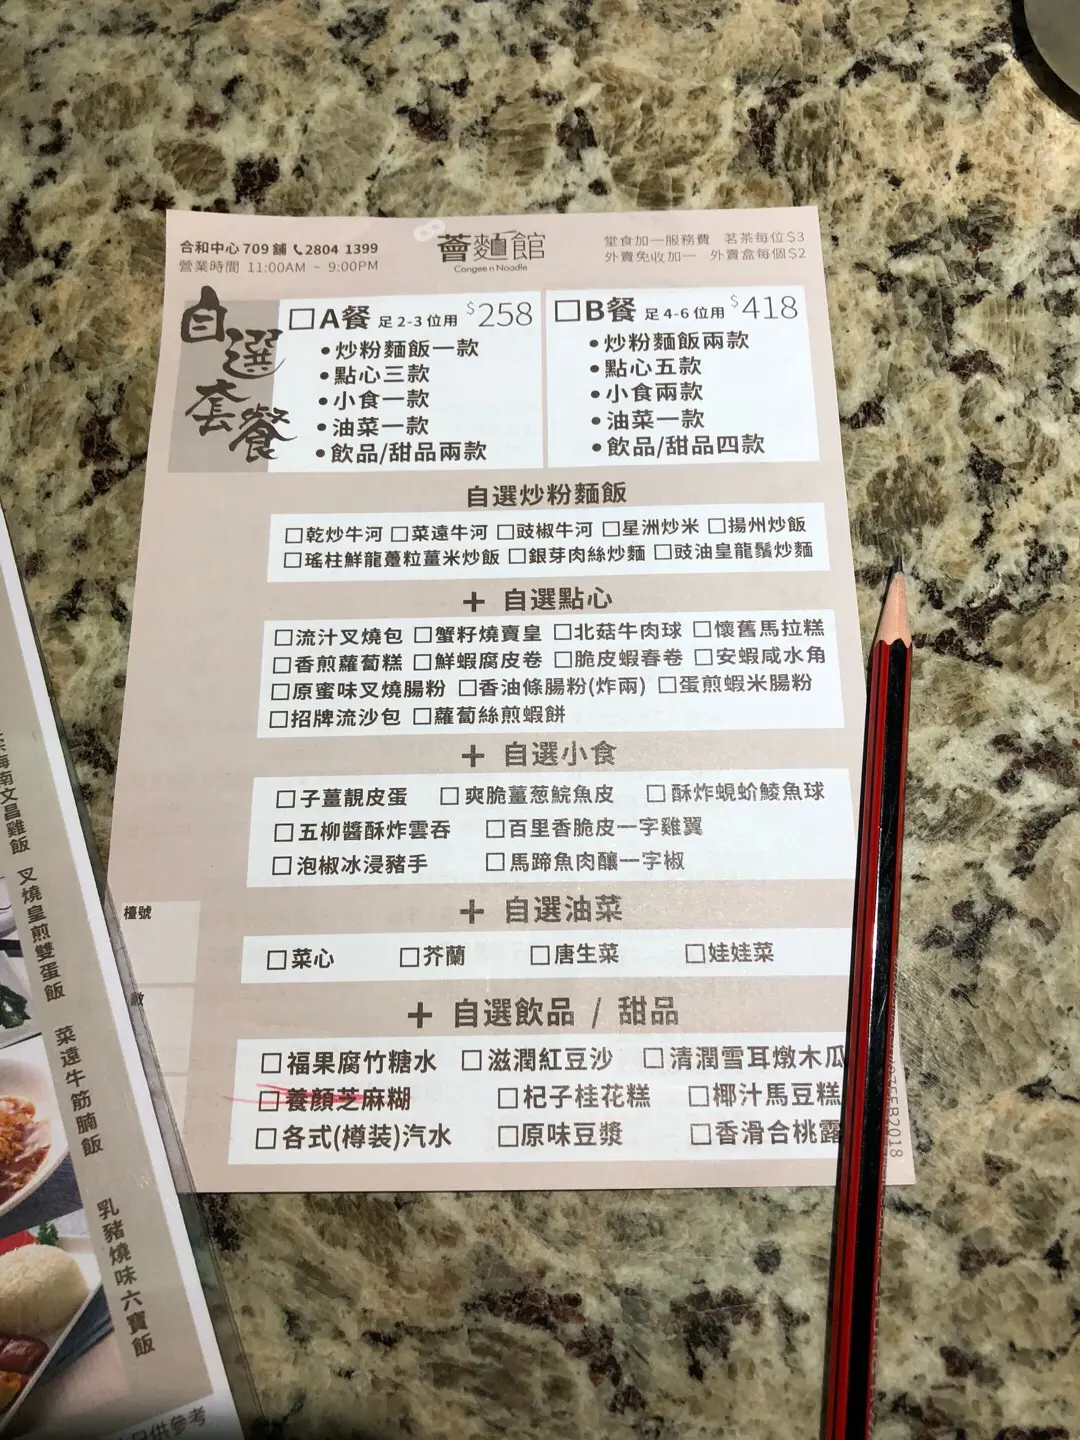 合和中心 709 舖 2804 1399
營業時間 11:00AM ~ 9:00PM
薈麵館
Congee n Noodle
堂食加一服務費 茗茶每位$3
外賣免收加一 外賣盒每個$2
自選套餐
□A餐 足 2-3 位用 $258
•炒粉麵飯一款
•點心三款
•小食一款
•油菜一款
•飲品/甜品兩款
□B餐 足 4-6 位用 $418
•炒粉麵飯兩款
•點心五款
•小食兩款
•油菜一款
•飲品/甜品四款
自選炒粉麵飯
□乾炒牛河 □菜遠牛河 □豉椒牛河 □星洲炒米 □揚州炒飯
□瑤柱鮮龍躉粒薑米炒飯 □銀芽肉絲炒麵 □豉油皇龍鬚炒麵
+ 自選點心
□流汁叉燒包 □蟹籽燒賣皇 □北菇牛肉球 □懷舊馬拉糕
□香煎蘿蔔糕 □鮮蝦腐皮卷 □脆皮蝦春卷 □安蝦咸水角
□原蜜味叉燒腸粉 □香油條腸粉(炸兩) □蛋煎蝦米腸粉
□招牌流沙包 □蘿蔔絲煎蝦餅
+ 自選小食
□子薑靚皮蛋 □爽脆薑葱鯇魚皮 □酥炸蜆蚧鯪魚球
□五柳醬酥炸雲吞 □百里香脆皮一字雞翼
□泡椒冰浸豬手 □馬蹄魚肉釀一字椒
+ 自選油菜
□菜心 □芥蘭 □唐生菜 □娃娃菜
+ 自選飲品 / 甜品
□福果腐竹糖水 □滋潤紅豆沙 □清潤雪耳燉木瓜
□養顏芝麻糊 □杞子桂花糕 □椰汁馬豆糕
□各式(樽装)汽水 □原味豆漿 □香滑合桃露
檯號
FEB2018
海南文昌雞飯
叉燒皇煎雙蛋飯
菜遠牛筋腩飯
乳豬燒味六寶飯
供參考